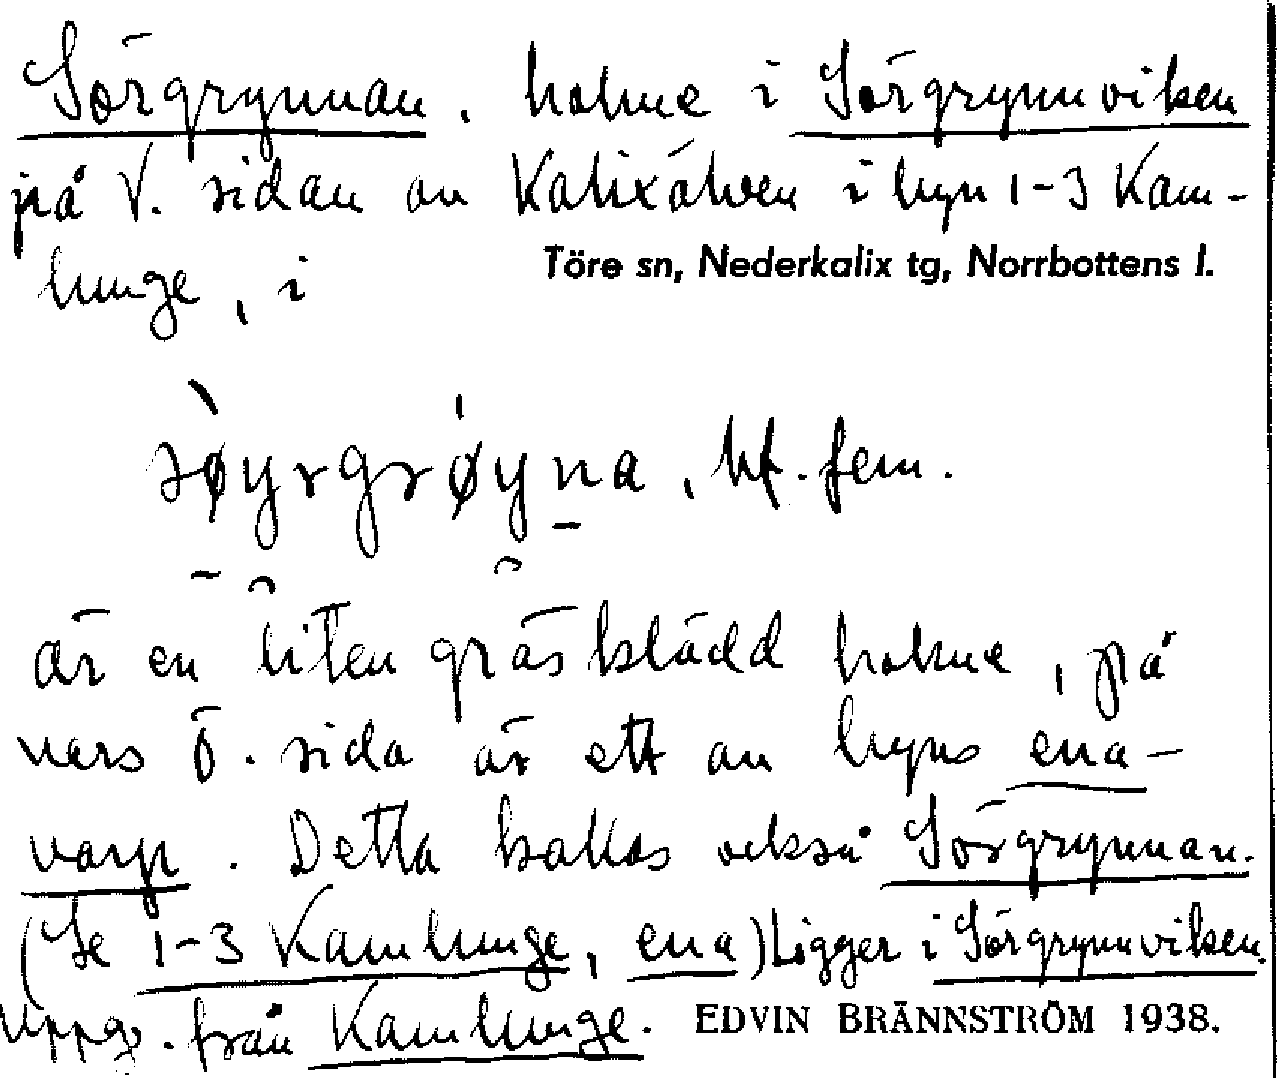 Sörgrynnan, holme i Sörgrynnviken
på V. sidan av Kalixälven i byn 1-3 Kam-
lunge, i
Töre sn, Nederkalix tg, Norrbottens l.
søyrgrøyna, bf. fem.
är en liten gräsklädd holme, på
vars Ö. sida är ett av byns ena-
varp. Detta kallas också Sörgrynnan.
(Se 1-3 Kamlunge, ena) Ligger i Sörgrynnviken.
Uppg. från Kamlunge.
EDVIN BRÄNNSTRÖM 1938.